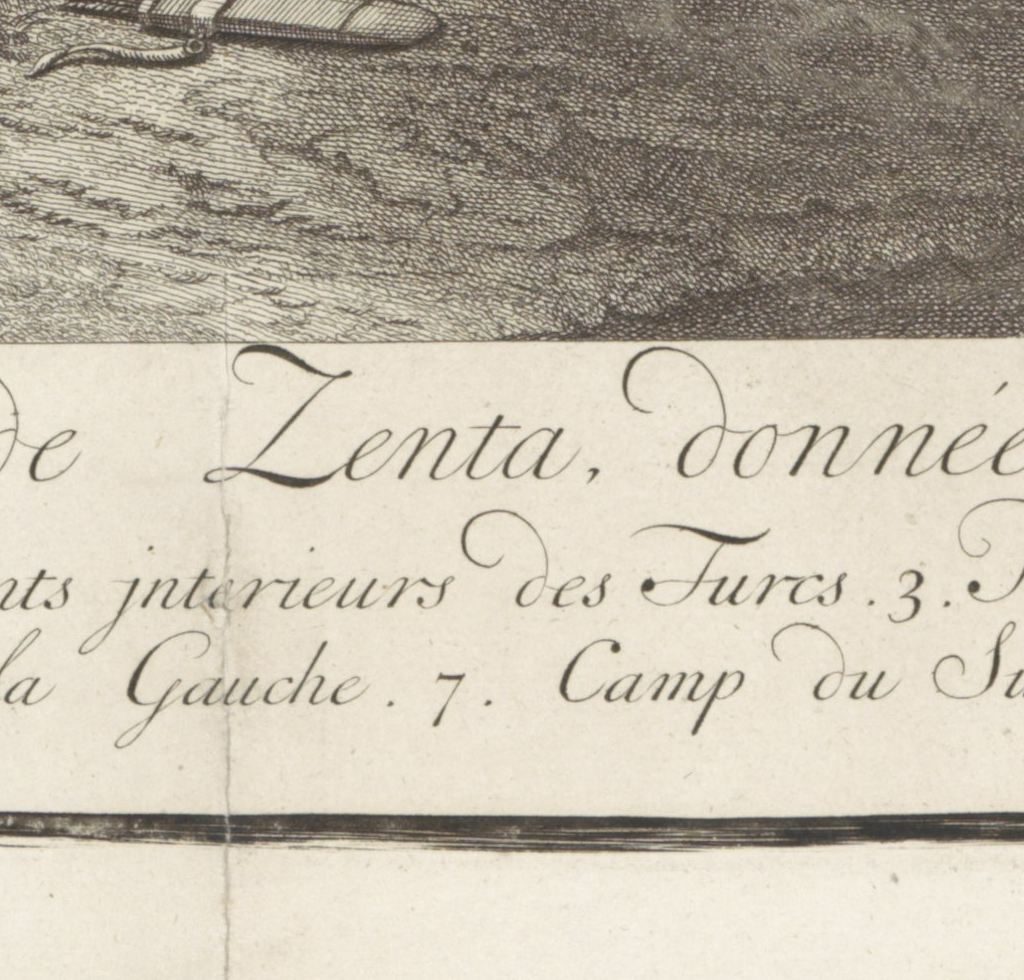 de Zenta, donnée
nts jnterieurs des Turcs. 3.
la Gauche. 7. Camp du Su